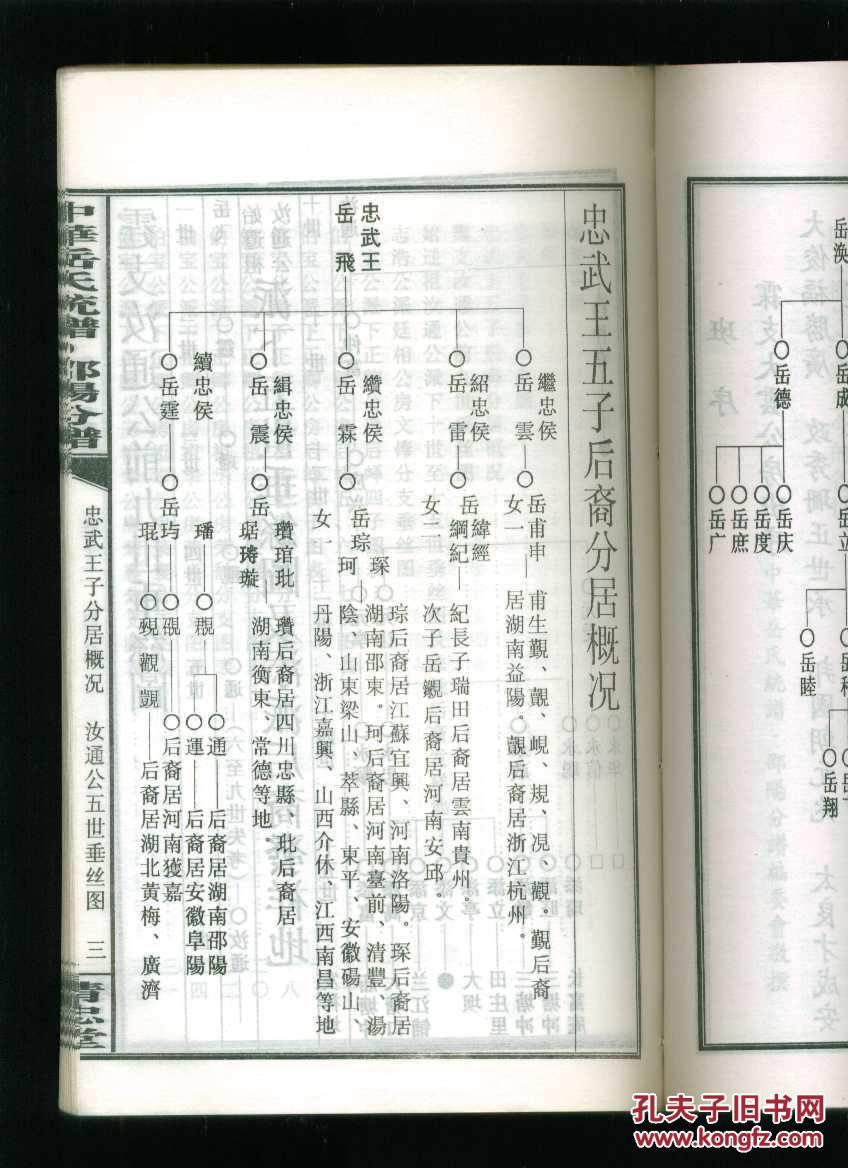 忠武王五子后裔分居概况
忠武王
岳飛
繼忠侯
岳雲
岳甫申
女一
甫生觐、覿、峴、規、况、觀。觐后裔
居湖南益陽。覿后裔居浙江杭州。
紹忠侯
岳雷
岳緯經
綱紀
女二
紀長子瑞田后裔居雲南貴州。
次子岳覯后裔居河南安邱。
纘忠侯
岳霖
岳琮琛
珂
女一
琮后裔居江蘇宜興、河南洛陽。琛后裔居
湖南邵東。珂后裔居河南臺前、清豐、湯
陰、山東梁山、萃縣、東平、安徽碭山、
丹陽、浙江嘉興、山西介休、江西南昌等地
緝忠侯
岳震
岳
瓚琯玭
琚璹璇
瓚后裔居四川忠縣、玭后裔居
湖南衡東、常德等地。
續忠侯
岳霆
岳
璠
琨
通
后裔居湖南邵陽
運
后裔居安徽阜陽
后裔居河南獲嘉
觀覬
后裔居湖北黄梅、廣濟
中華岳氏統譜·邵陽分譜
忠武王子分居概况
汝通公五世垂丝图
三
精忠堂
岳涣
岳成
岳德
岳立
岳庆
岳度
岳庶
岳广
岳睦
岳翔
大俊福勝廣
班序
孔夫子旧书网
www.kongfz.com